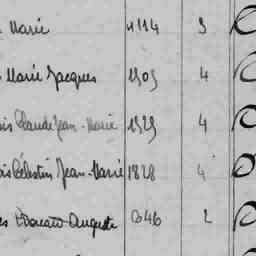 Marie 1114 3
Marie Jacques 1909 4
is Claude Jean-Marie 1929 4
is Célestin Jean-Marie 1828 4
es Edouard Auguste 0646 2